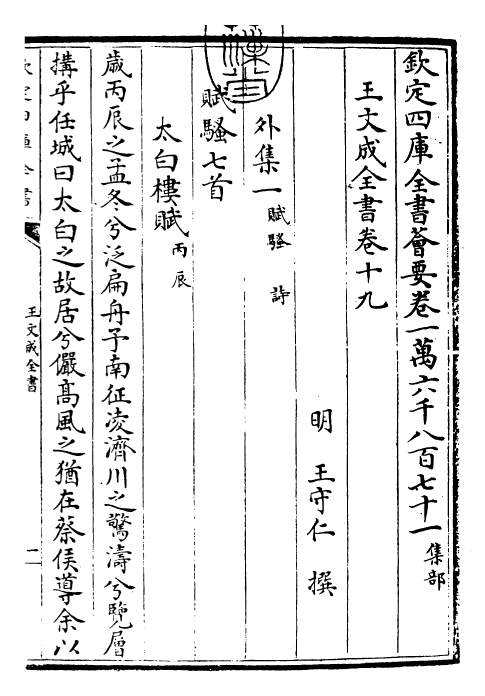 欽定四庫全書薈要卷一萬六千八百七十一集部
王文成全書卷十九
明 王守仁 撰
外集一賦騷 詩
賦騷七首
太白樓賦丙辰
歲丙辰之孟冬兮泛扁舟予南征凌濟川之驚濤兮覽層
搆乎任城曰太白之故居兮儼高風之猶在蔡侯導余以
王文成全書
一